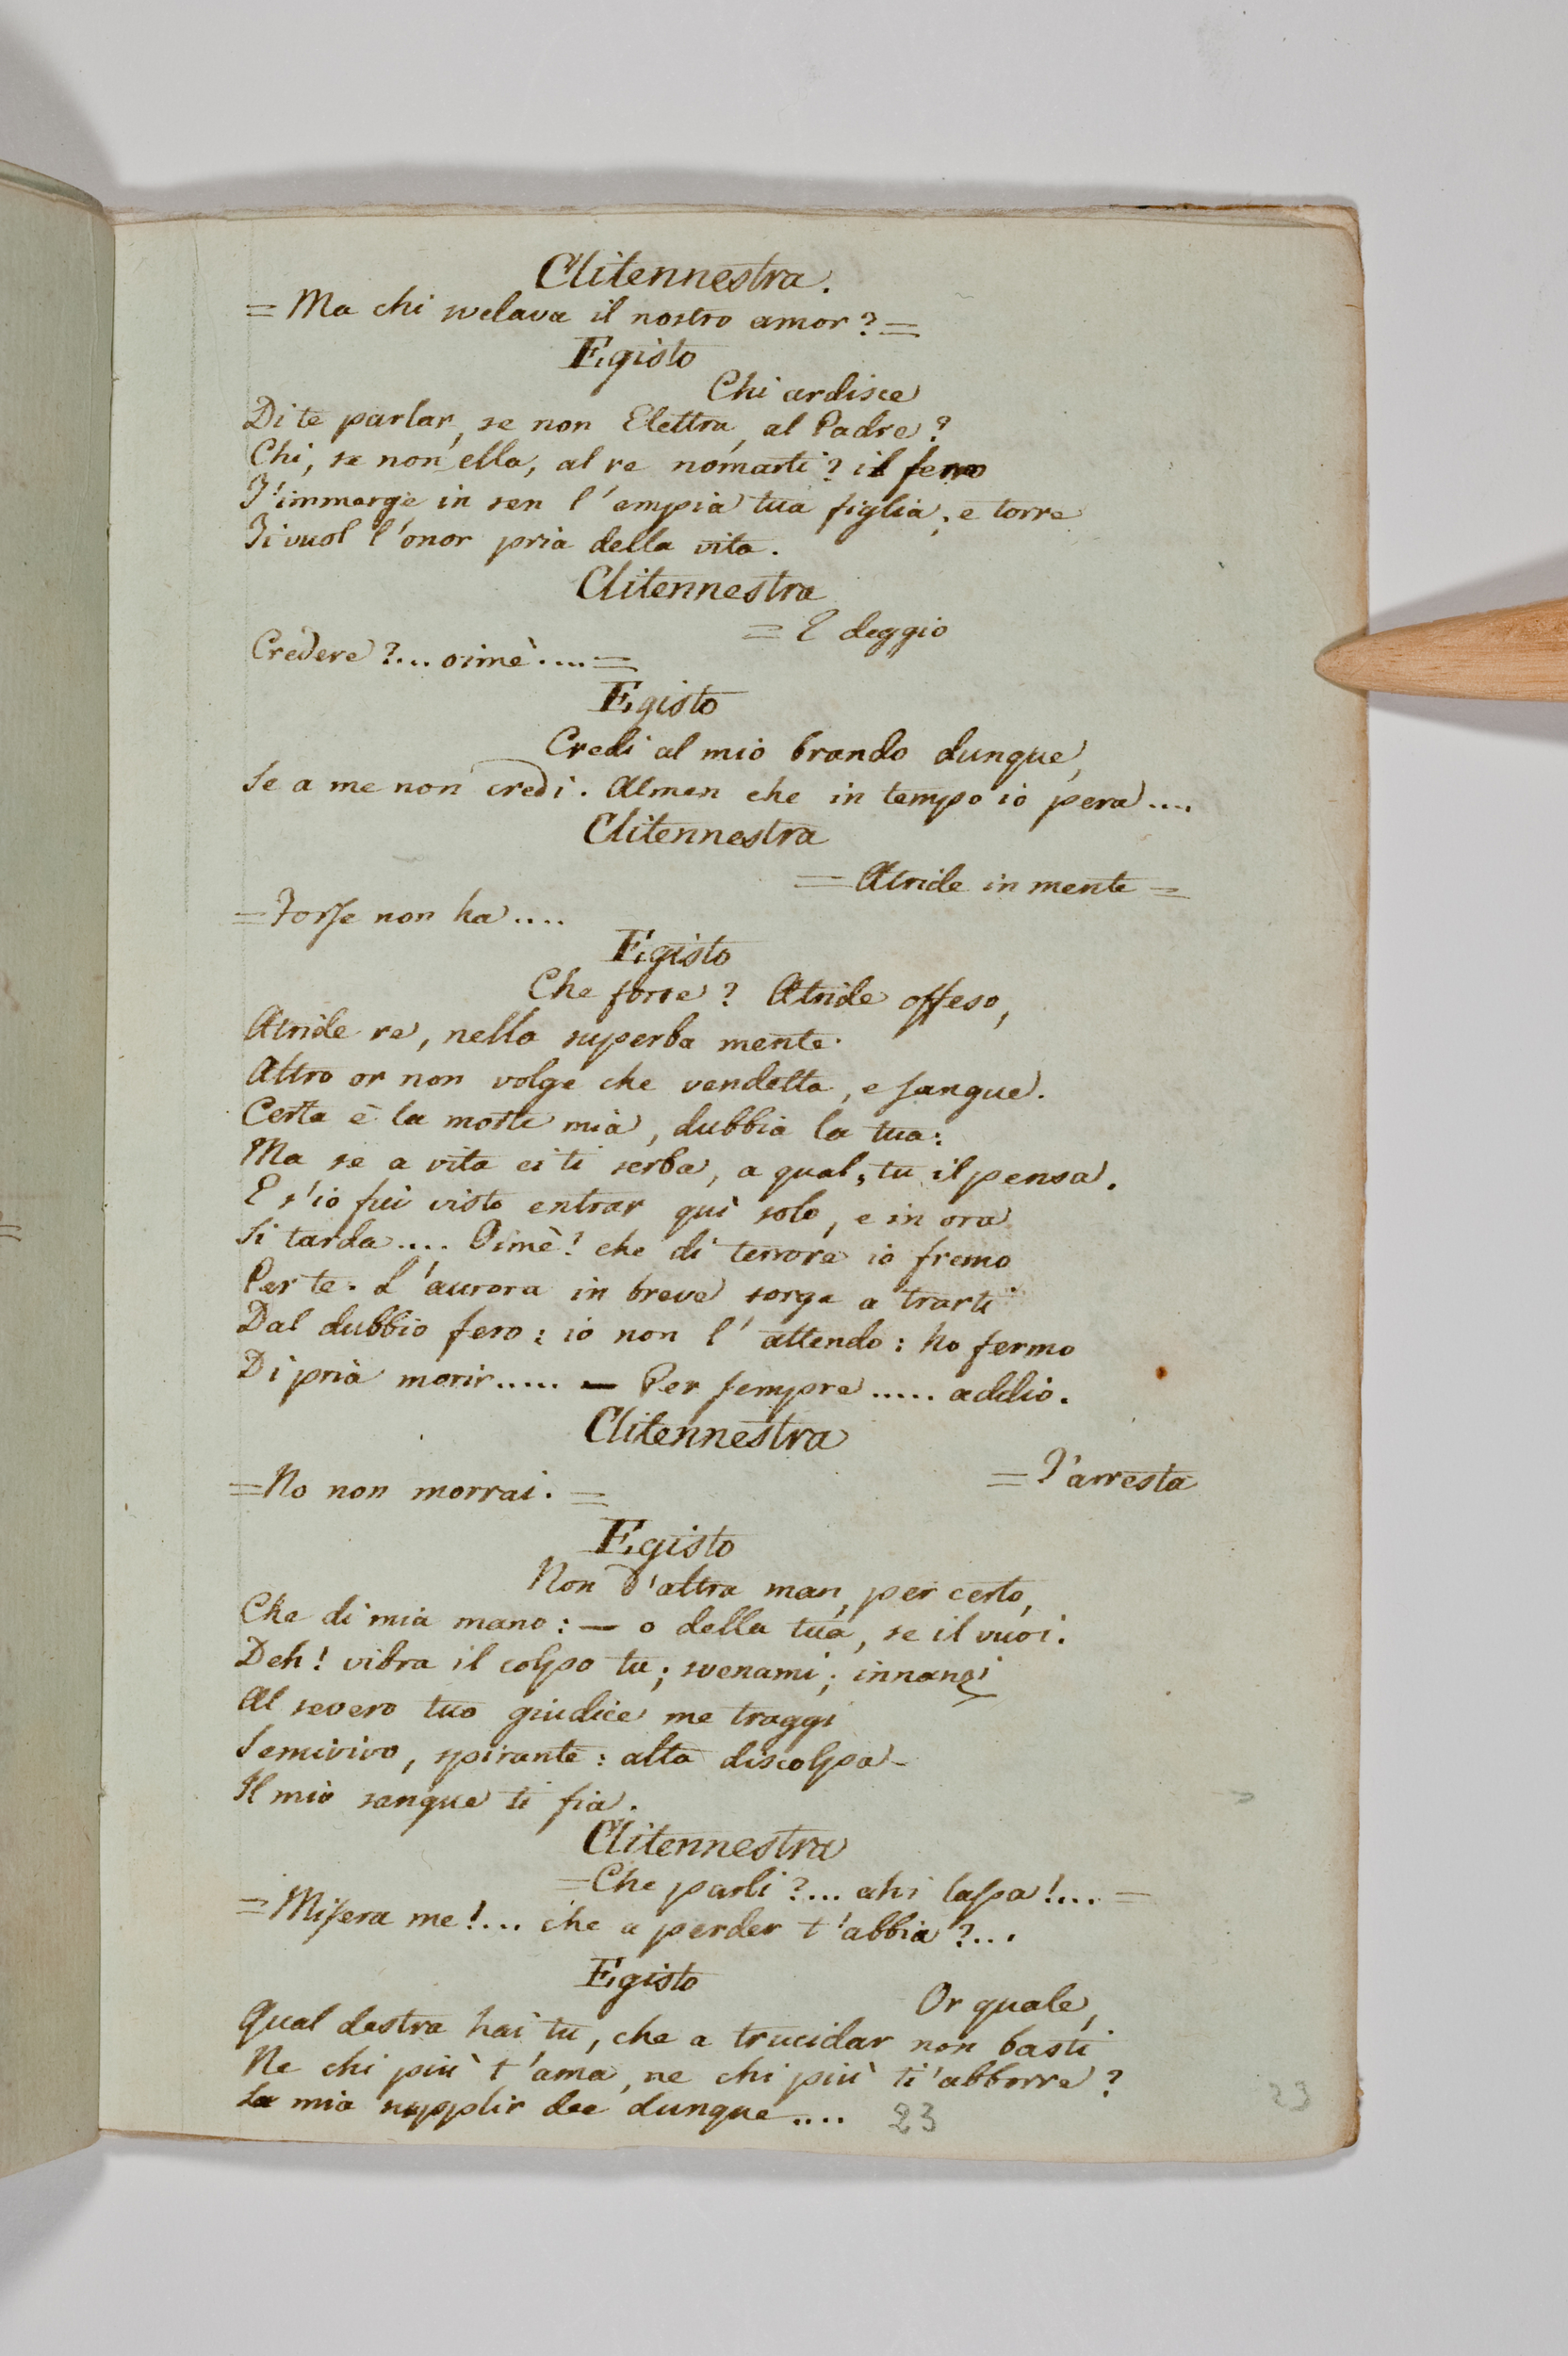 Clitennestra.
= Ma chi svelava il nostro amor? =
Egisto
Chi ardisce
Di te parlar, se non Elettra, al Padre?
Chi, se non ella, al re nomarti? il ferro
T'immerge in sen l'empia tua figlia; e torre
Ti vuol l'onor pria della vita.
Clitennestra
= E deggio
Credere?... oimè.... =
Egisto
Credi al mio brando dunque,
Se a me non credi. Almen che in tempo io pera....
Clitennestra
= Atride in mente =
= Forse non ha....
Egisto
Che forse? Atride offeso,
Atride re, nella superba mente
Altro or non volge che vendetta, e sangue.
Certa è la morte mia, dubbia la tua:
Ma se a vita ei ti serba, a qual, tu il pensa.
E s'io fui visto entrar quì solo, e in ora
Sì tarda.... Oimè! che di terrore io fremo
Per te. L'aurora in breve sorge a trarti
Dal dubbio fero: io non l'attendo: ho fermo
Di pria morir..... — Per sempre..... addio.
Clitennestra
= T'arresta
= No non morrai. =
Egisto
Non d'altra man, per certo,
Che di mia mano: — o della tua, se il vuoi.
Deh! vibra il colpo tu; svenami; innanzi
Al severo tuo giudice me traggi
Semivivo, spirante: alta discolpa
Il mio sangue ti fia.
Clitennestra
= Che parli?... ahi lassa!... =
= Misera me!... che a perder t'abbia?...
Egisto
Or quale,
Qual destra hai tu, che a trucidar non basti
Ne chi più t'ama, ne chi più ti'abborre?
La mia supplir dee dunque....
23
23